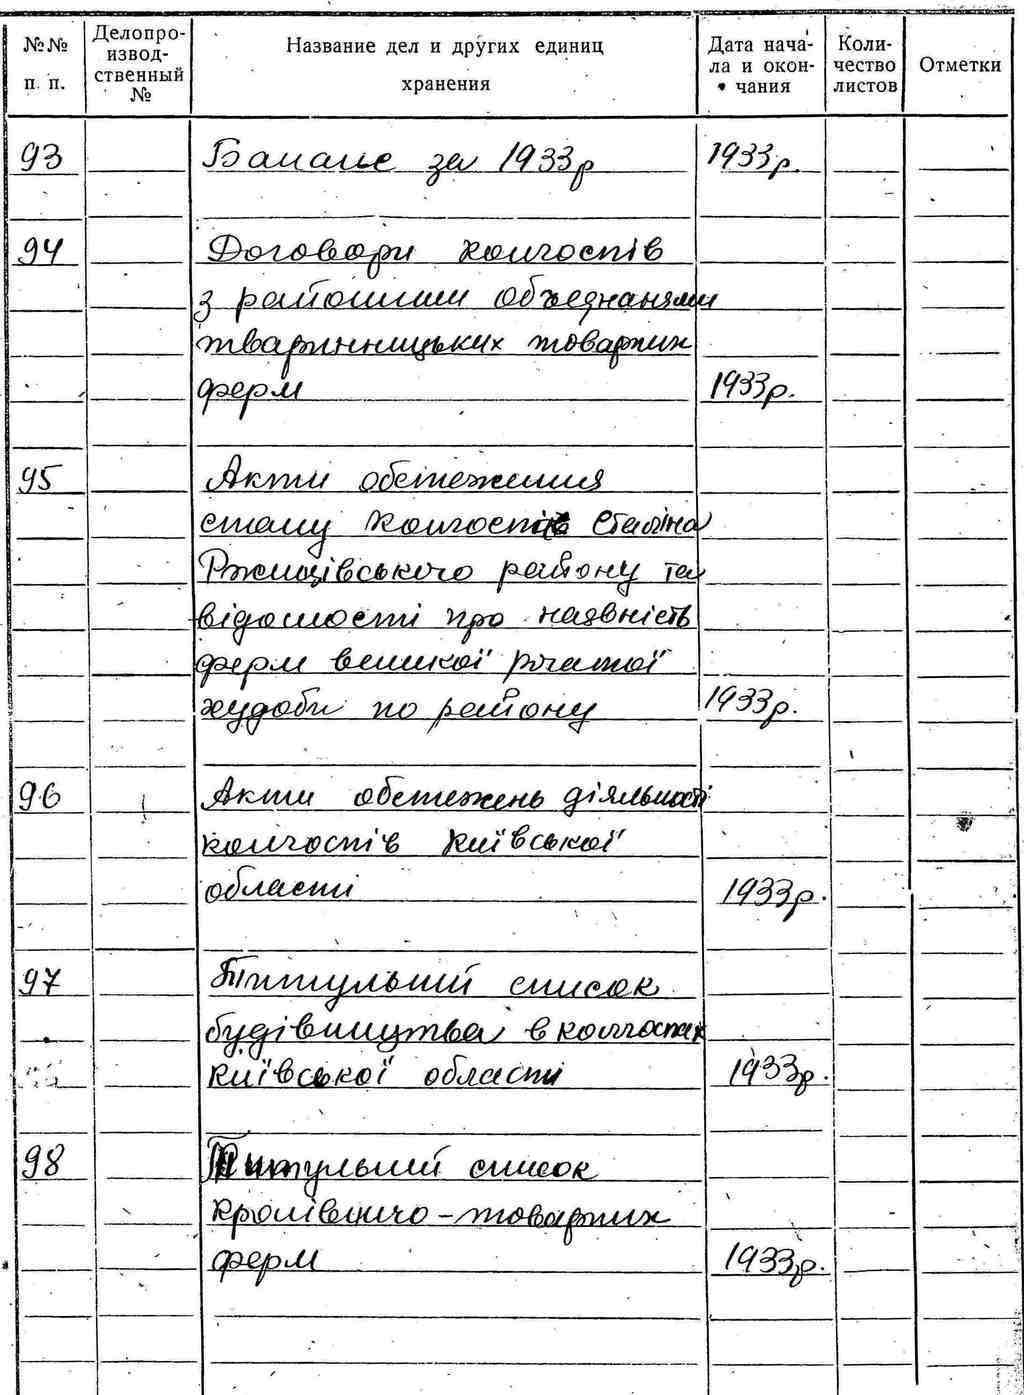 №№ п. п.
Делопро-
извод-
ственный
№
Название дел и других единиц
хранения
Дата нача-
ла и окон-
чания
Коли-
чество
листов
Отметки
93 Баланс за 1933р 1933р.
94 Договори колгоспів
з районими объеднаннями
тваринницьких товарних
ферм 1933р.
95 Акти обстеження
стану колгоспів Сталіна
Ржищівського району та
відомості про наявність
ферм великої рогатої
худоби по району 1933р.
96 Акти обстежень діяльності
колгоспів Київської
області 1933р.
97 Титульний список
будівництва в колгоспах
Київської області 1933р.
98 Титульний список
кролівничо-товарних
ферм 1933р.